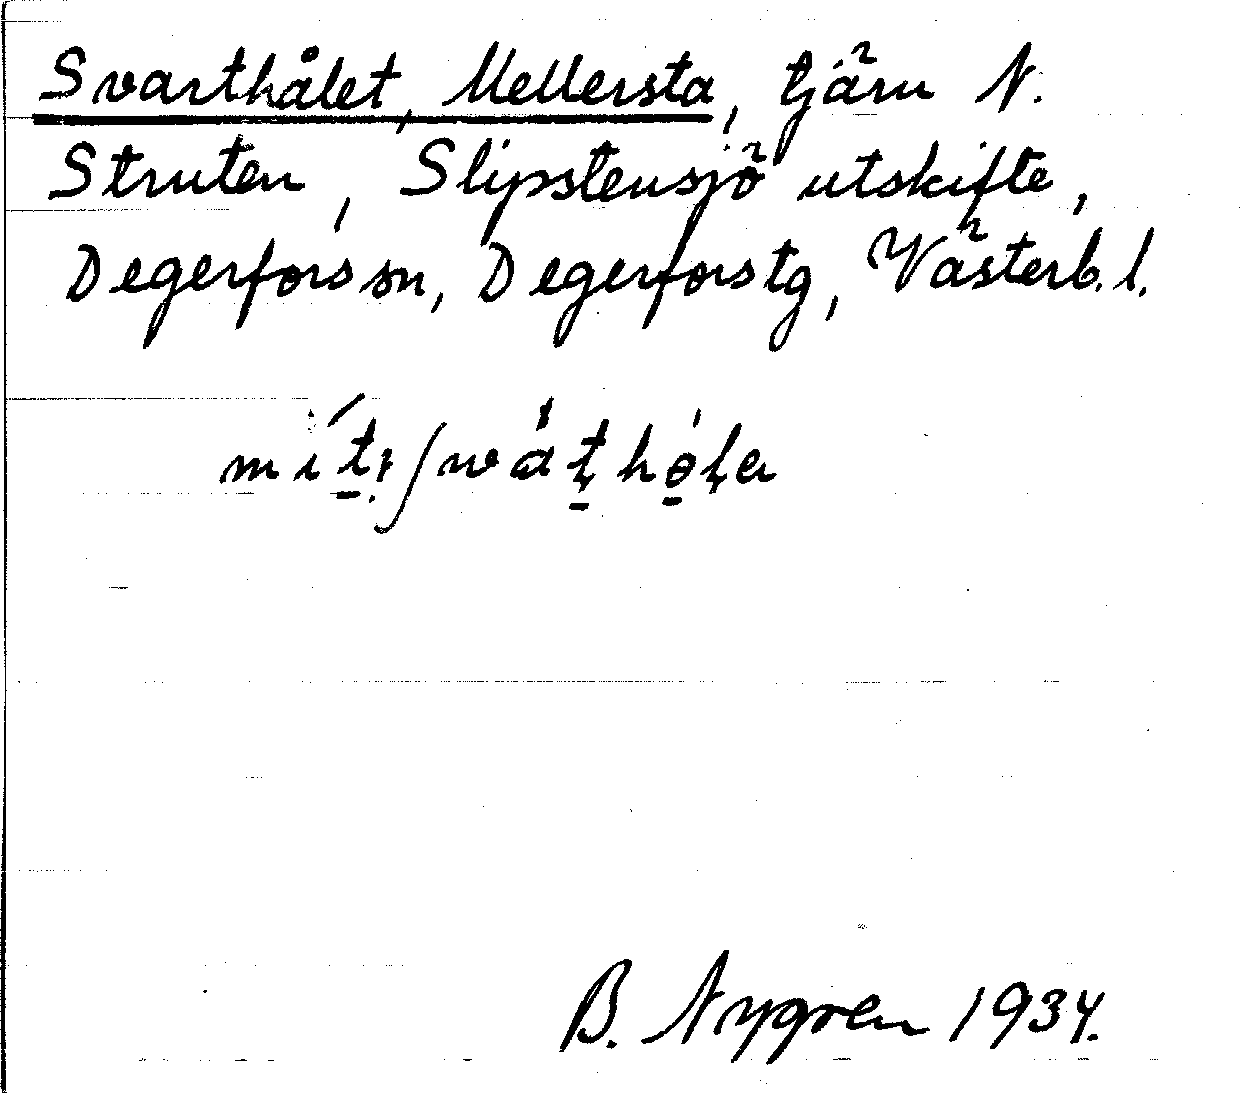 Svarthålet, Mellersta, tjärn N.
Struten, Slipstensjö utskifte,
Degerfors sn, Degerfors tg, Västerb. l.
B. Nygren 1934.